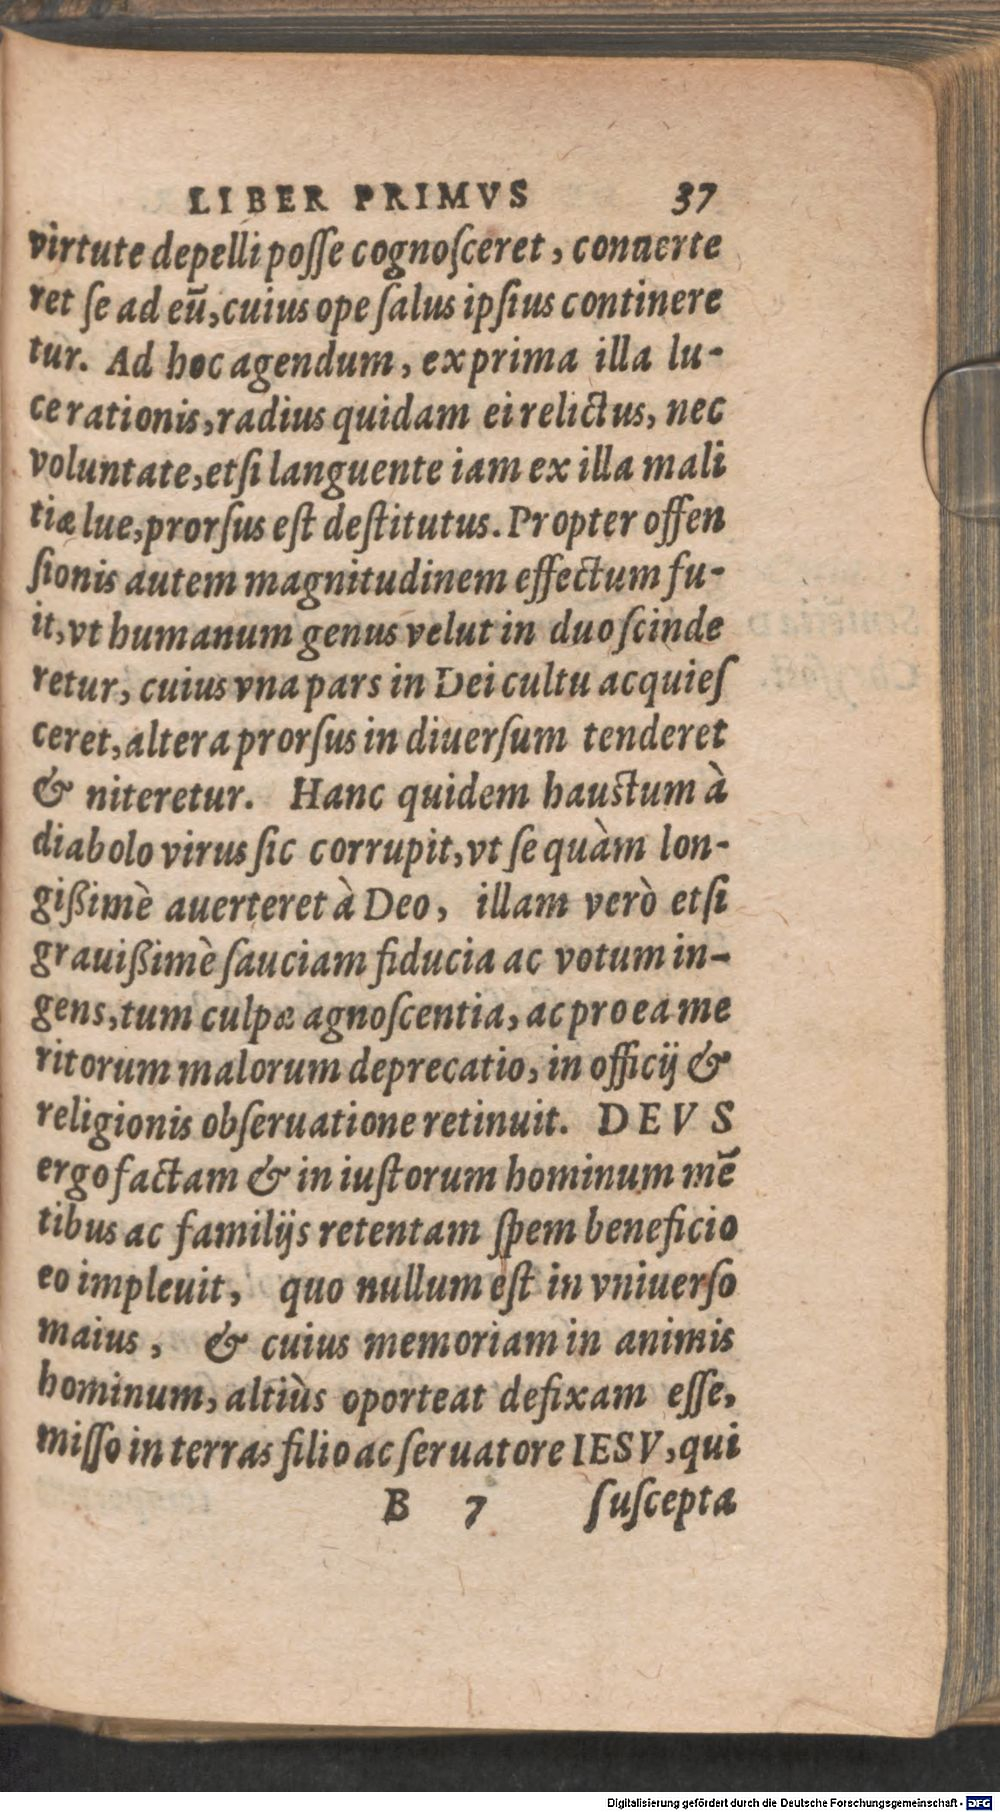 LIBER PRIMVS 37
virtute depelli poſſe cognoſceret, conuerte
ret ſe ad eũ, cuius ope ſalus ipſius continere
tur. Ad hoc agendum, ex prima illa lu-
ce rationis, radius quidam ei relictus, nec
voluntate, etſi languente iam ex illa mali
tiæ lue, prorſus eſt deſtitutus. Propter offen
ſionis autem magnitudinem effectum fu-
it, vt humanum genus velut in duo ſcinde
retur, cuius vna pars in Dei cultu acquieſ
ceret, altera prorſus in diuerſum tenderet
& niteretur. Hanc quidem hauſtum à
diabolo virus ſic corrupit, vt ſe quàm lon-
gißimè auerteret à Deo, illam verò etſi
grauißimè ſauciam fiducia ac votum in-
gens, tum culpæ agnoſcentia, ac pro ea me
ritorum malorum deprecatio, in officij &
religionis obſeruatione retinuit. DEVS
ergo factam & in iuſtorum hominum mẽ
tibus ac familijs retentam ſpem beneficio
eo impleuit, quo nullum eſt in vniuerſo
maius, & cuius memoriam in animis
hominum, altiùs oporteat defixam eſſe,
miſſo in terras filio ac ſeruatore IESV, qui
B 7 ſuſcepta
Digitalisierung gefördert durch die Deutsche Forschungsgemeinschaft - DFG